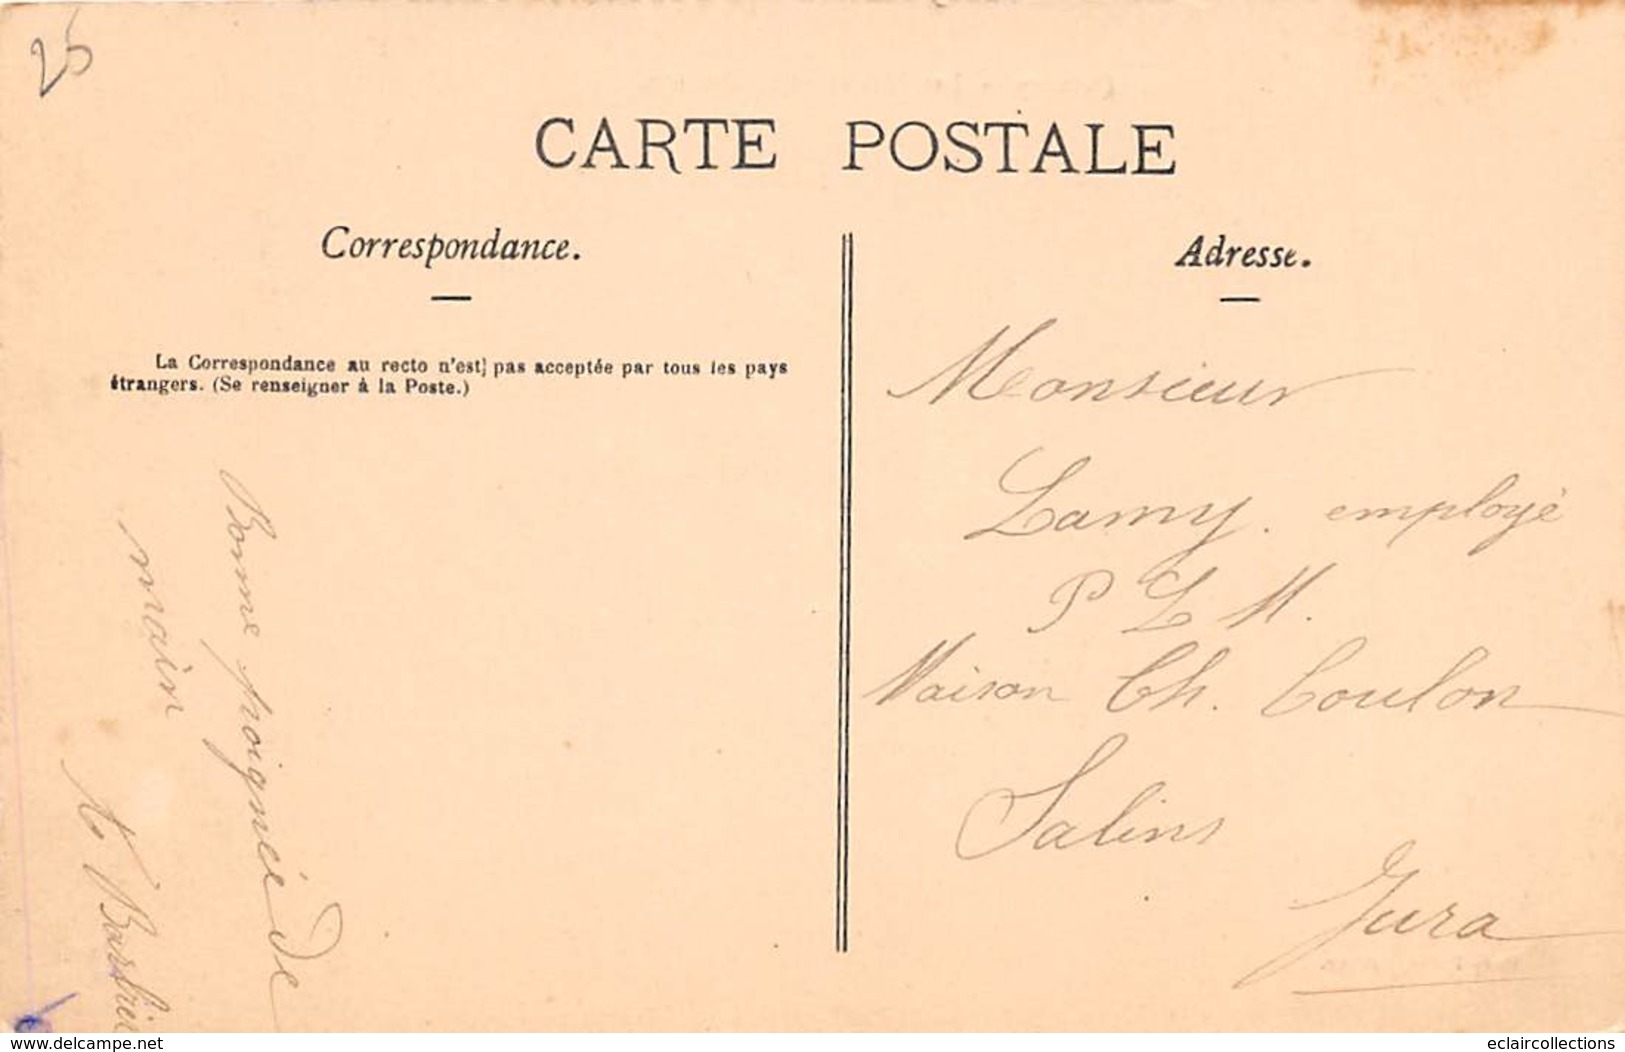 25
CARTE POSTALE
Correspondance.
La Correspondance au recto n'est pas acceptée par tous les pays
étrangers. (Se renseigner à la Poste.)
Bonne poignée de
main
Adresse.
Monsieur
Lamy. employé
P L M.
Maison Ch. Coulon
Salins
Jura
www.delcampe.net
eclaircollections